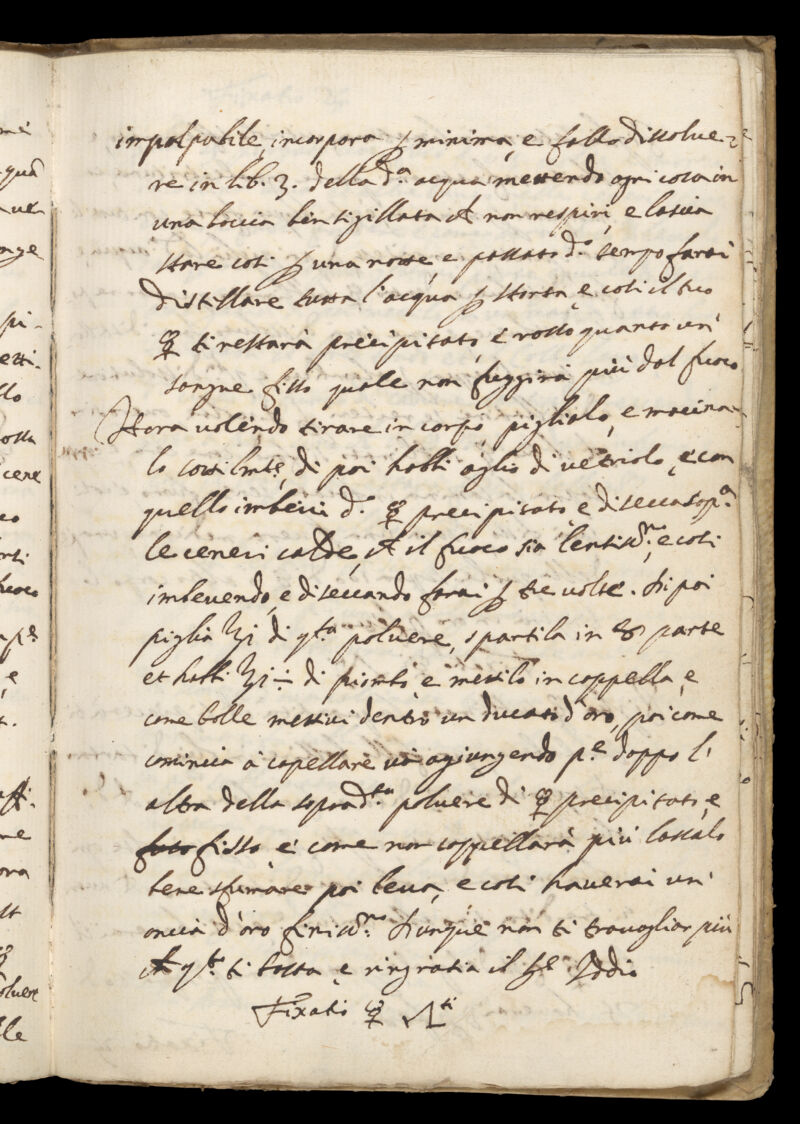 impalpabile, incorpora p minima, e fallo dissolve-
re in lib. 3. della d.ª acqua mettendo ogni cosa in
una boccia ben sigillata ch non respiri, e lascia
stare così p una notte, e passato d.º tempo farai
distillare tutta l'acqua p storta, e così il tuo
☿ ti restarà precipitato, e rosso quanto un
sangue fisso quale non fuggirà più dal fuoco
Hora volendo tirare in corpo piglialo, e macina-
lo sottilmte, di poi habbi oglio di vetriolo, e con
quello imbevi d.º ☿ precipitato, e disecca sop.ª
le ceneri calde, ch il fuoco sia lentiss.º, e così
imbevendo, e diseccando farai p tre volte. Di poi
piglia ʒj di qta polvere, spartila in 8 parte
et habbi ʒj di piombo, e mettilo in coppella, e
come bolle mettivi dentro un ducato d'oro, poi come
comincia à capellare và agiungendo p.e doppo l'
altra della soprad.ta polvere di ☿ precipitato, e
fisso e come non coppellarà più lascialo
bene sfumare poi leva, e così haverai un
oncia d'oro finiss.mo Dunque non ti travagliar più
ch qto ti basta, e ringratia il Sre Iddio
Fixatio ☿